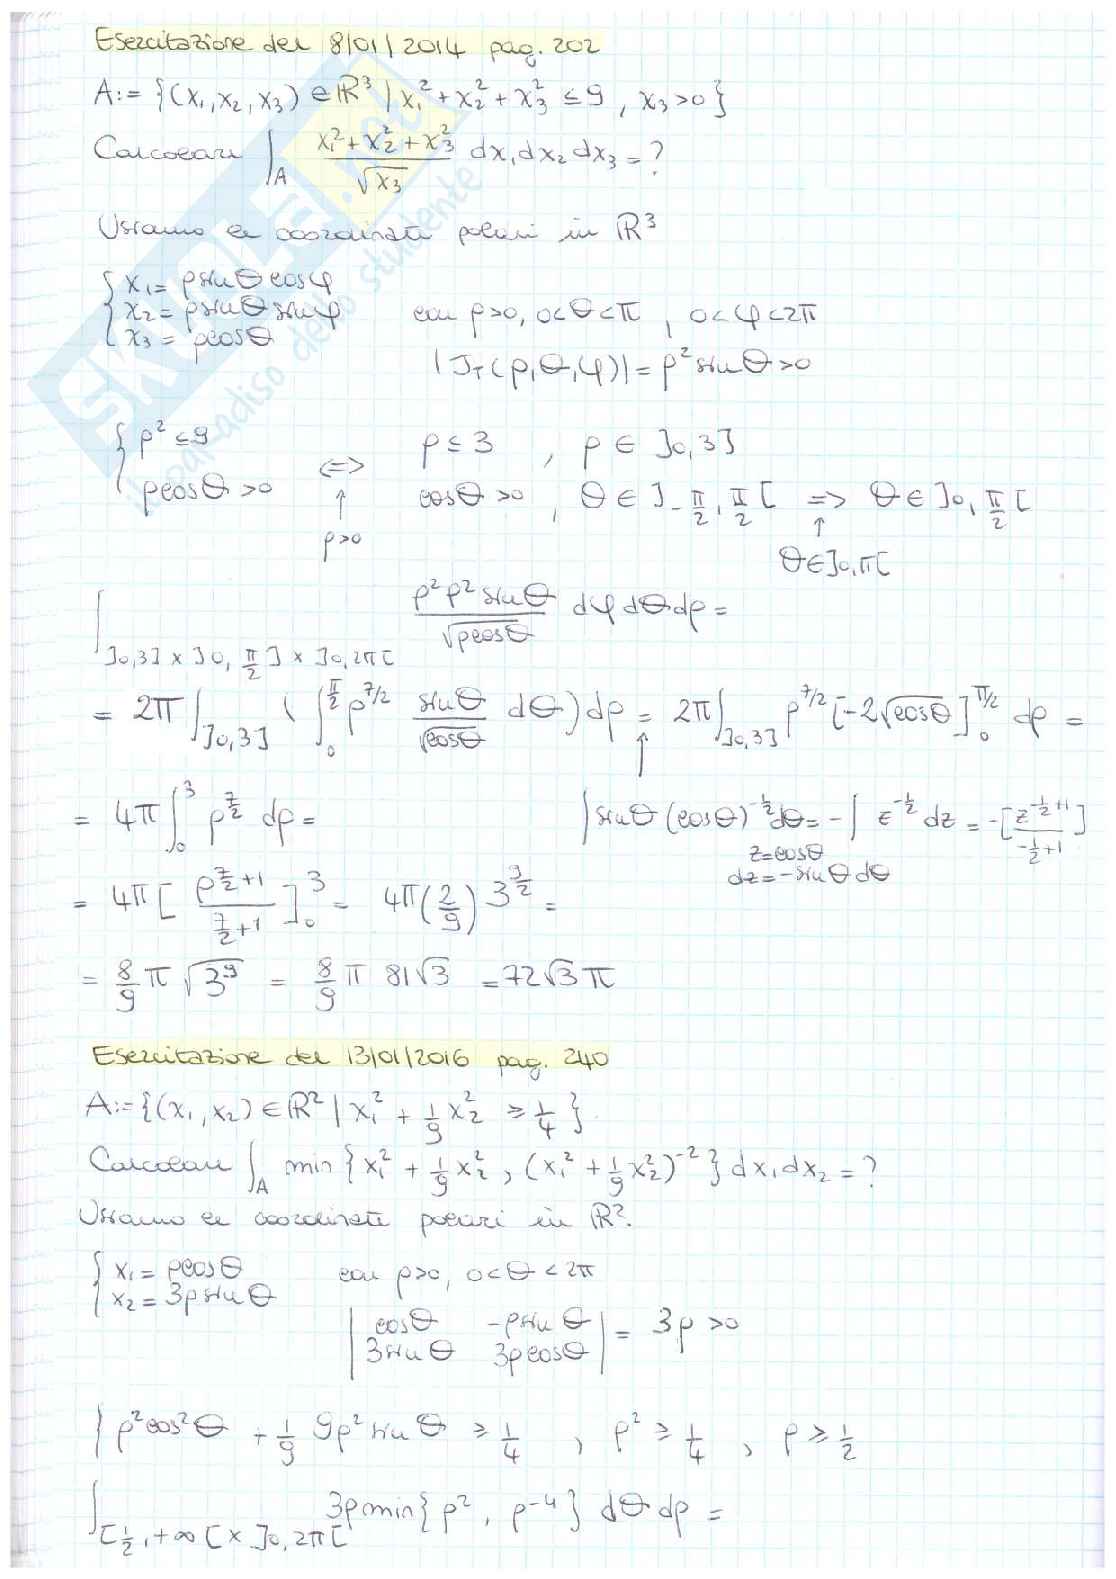 Esercitazione del 8/01/2014 pag. 202
A:= {(x₁,x₂,x₃) ∈ ℝ³ | x₁²+x₂²+x₃² ≤ 9, x₃>0}
Calcolare ∫_A (x₁²+x₂²+x₃²)/√x₃ dx₁dx₂dx₃ = ?
Usiamo le coordinate polari in ℝ³
{ x₁ = ρsinθcosφ
x₂ = ρsinθsinφ con ρ>0, 0<θ<π, 0<φ<2π
x₃ = ρcosθ
|J_T(ρ,θ,φ)| = ρ²sinθ>0
{ ρ² ≤ 9 ⇔ ρ ≤ 3, ρ ∈ ]0,3]
ρcosθ>0 ↑ cosθ>0, θ ∈ ]-π/2, π/2[ ⇒ θ ∈ ]0, π/2[
ρ>0 ↑ θ∈]0,π[
∫_{]0,3] × ]0, π/2] × ]0,2π[} (ρ²ρ²sinθ)/√(ρcosθ) dφdθdρ =
= 2π ∫_{]0,3]} ( ∫_0^{π/2} ρ^{7/2} sinθ/√cosθ dθ) dρ = 2π ∫_{]0,3]} ρ^{7/2} [-2√cosθ]_0^{π/2} dρ =
↑
= 4π ∫_0^3 ρ^{7/2} dρ = ∫sinθ (cosθ)^{-1/2} dθ = -∫ z^{-1/2} dz = -[z^{-1/2+1}/(-1/2+1)]
z=cosθ
dz=-sinθdθ
= 4π [ρ^{7/2+1}/(7/2+1)]_0^3 = 4π(2/9) 3^{9/2} =
= 8/9 π √3⁹ = 8/9 π 81√3 = 72√3 π
Esercitazione del 13/01/2016 pag. 240
A:={(x₁,x₂) ∈ ℝ² | x₁² + 1/9 x₂² ≥ 1/4}
Calcolare ∫_A min {x₁² + 1/9 x₂², (x₁² + 1/9 x₂²)^{-2}} dx₁dx₂ = ?
Usiamo le coordinate polari in ℝ².
{ x₁ = ρcosθ con ρ>0, 0<θ<2π
x₂ = 3ρsinθ
| cosθ -ρsinθ |
| 3sinθ 3ρcosθ | = 3ρ >0
{ ρ²cos²θ + 1/9 9ρ²sinθ ≥ 1/4, ρ² ≥ 1/4, ρ ≥ 1/2
∫_{[1/2,+∞[ × ]0,2π[} 3ρmin{ρ², ρ^{-4}} dθdρ =
SKUOLA.net
il paradiso dello studente